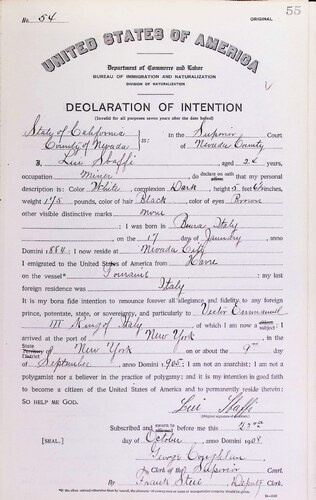 55
No. 54 ORIGINAL
UNITED STATES OF AMERICA
Department of Commerce and Labor
BUREAU OF IMMIGRATION AND NATURALIZATION
DIVISION OF NATURALIZATION
DECLARATION OF INTENTION
(Invalid for all purposes seven years after the date hereof)
State of California
County of Nevada ss: In the Superior Court
of Nevada County
I, Lui Staffi, aged 24 years,
occupation Miner, do declare on oath that my personal
description is: Color White, complexion Dark, height 5 feet 6 inches,
weight 175 pounds, color of hair Black, color of eyes Brown
other visible distinctive marks none
; I was born in Italy
on the 17 day of January, anno
Domini 1884; I now reside at Nevada City
I emigrated to the United States of America from Havre
on the vessel* Touraine; my last
foreign residence was Italy
It is my bona fide intention to renounce forever all allegiance and fidelity to any foreign
prince, potentate, state, or sovereignty, and particularly to Victor Emmanuel
III King of Italy, of which I am now a subject; I
arrived at the port of New York, in the
State
Territory
District of New York on or about the 9 day
of September, anno Domini 1905; I am not an anarchist; I am not a
polygamist nor a believer in the practice of polygamy; and it is my intention in good faith
to become a citizen of the United States of America and to permanently reside therein:
SO HELP ME GOD.
Lui Staffi
(Original signature of declarant)
Subscribed and sworn to before me this 23rd
[SEAL.] day of October, anno Domini 1908
George Coughlin
Clerk of the Superior Court
By Frank Steel Deputy Clerk.